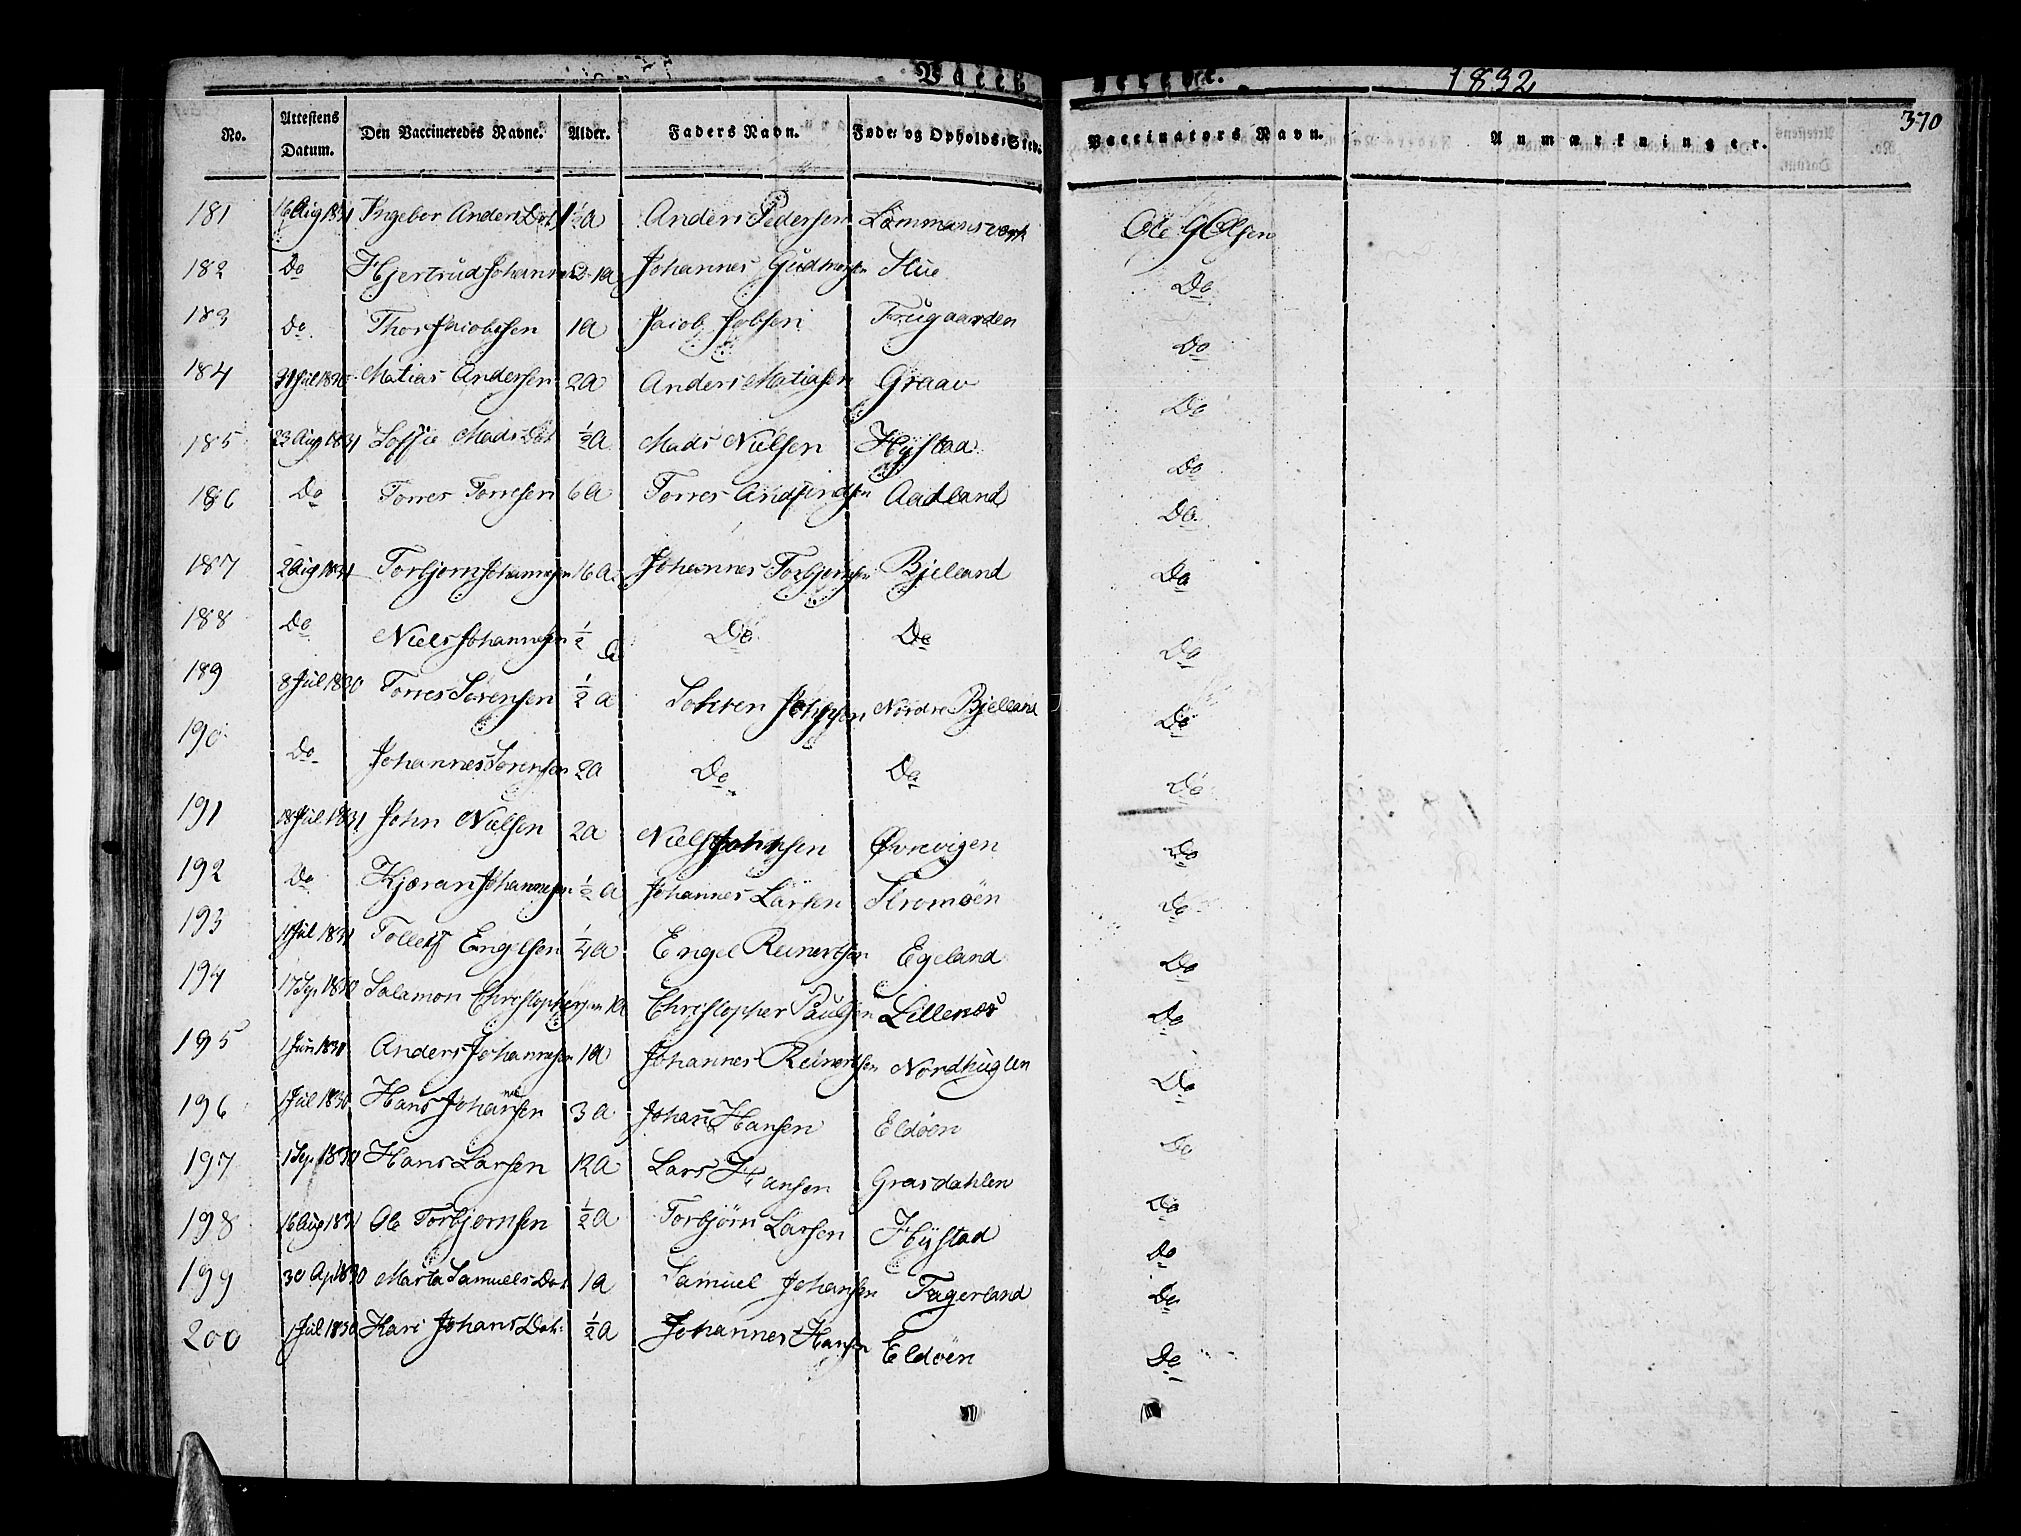 1832
370
No. Attestens Datum. Den Vaccineredes Navne. Alder. Faders Navn. Føde- og Opholds-Sted. Vaccinators Navn. Anmærkninger.
181 16 Aug 1831 Ingebor Anders Dot 1½ A Anders Pedersen Lammansverk Ole G Olsen
182 Do 1 A Johannes Hüe Do
183 Do Thor Jacobsen 1 A Jacob Jobsen Frugaarden Do
184 31 Jul 1830 Matias Andersen 2 A Anders Matiasen Graav Do
185 23 Aug 1831 Soffie Mads Dot ½ A Mads Nielsen Hÿstad Do
186 Do Torres Torresen 6 A Torres Andfindsen Aadland Do
187 2 Aug 1831 Torbjørn Johannesen 16 A Johannes Torbjørnsen Bjelland Do
188 Do Niels Johannesen ½ Do Do Do
189 8 Jul 1830 Torres Sørensen ½ A Nordre Bjelland Do
190 Do Johannes Sørensen 2 A Do Do Do
191 18 Jul 1831 John Nielsen 2 A Niels Johnsen Øvrevigen Do
192 Do Kjæran Johannesen ½ A Johannes Larsen Stromøen Do
193 1 Jul 1831 Tollef Engelsen ¼ A Engel Reinertsen Egeland Do
194 17 Sep 1830 Salamon Christophersen 1 A Christopher Paulsen Lillenæs Do
195 1 Jun 1830 Anders Johannesen 1 A Johannes Reinertsen Nordhuglen Do
196 1 Jul 1830 Hans Johannesen 3 A Johan Hansen Eldøen Do
197 1 Sep 1830 Hans Larsen 12 A Lars Hansen Græsdahlen Do
198 16 Aug 1831 Ole Torbjørnsen ½ A Torbjørn Larsen Hÿstad Do
199 30 Ap 1830 Marta Samuels Dot 1 A Samuel Johansen Fagerland Do
200 1 Jul 1830 Kari Johans Dot ½ A Johannes Hansen Eldøen Do